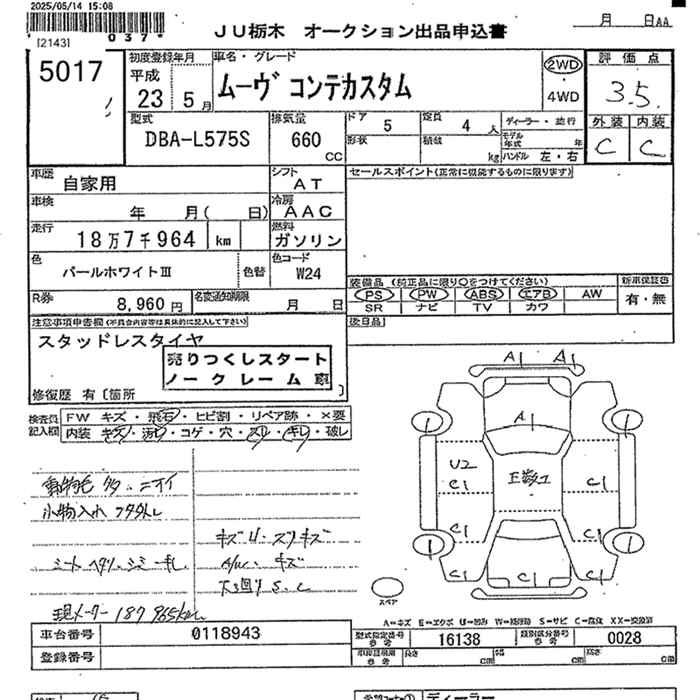 2025/05/14 15:08
037
[2143]
ＪＵ栃木 オークション出品申込書
月 日AA
5017
初度登録年月
平成
23 5月
車名・グレード
ムーヴ コンテカスタム
2WD
4WD
評価点
3.5
外装 内装
C C
型式
DBA-L575S
排気量
660 CC
ドア 5
定員 4 人
形状
積載 kg
ディーラー・並行
モデル年式 年
ハンドル 左・右
車歴 自家用
シフト AT
セールスポイント(正常に機能するものに限ります)
車検 年 月( 日)
冷房 AAC
走行 18万7千964 km
燃料 ガソリン
色 パールホワイトⅢ
色替
色コード W24
装備品 (純正品に限り○をつけてください)
新車保証書
PS PW ABS エアB AW
有・無
SR ナビ TV カワ
R券 8,960 円
名変通知期限 月 日
後日品
注意事項申告欄(不具合内容等は具体的に記入して下さい)
スタッドレスタイヤ
売りつくしスタート
ノークレーム車
修復歴 有〔箇所 〕
検査員記入欄
FW キズ・飛石・ヒビ割・リペア跡・×要
内装 キズ・汚れ・コゲ・穴・スレ・キレ・破レ
動物毛 多・ニオイ
小物入れ フタ外し
シート ヘタリ・シミ・キレ
現メーター 187965km
キズ U・スリキズ
A/U・キズ
下回り S.C
A1 A1
A1
1 1
U2
C1 C1
正数1
C1 C1
1 1
C1 C1
スペア
A－キズ E－エクボ U－凹み W－補修跡 S－サビ C－腐食 XX－交換済
車台番号 0118943
型式指定番号 参考 16138
類別区分番号 参考 0028
登録番号
車庫証明用 参考
長さ cm
幅 cm
高さ cm
ディーラー